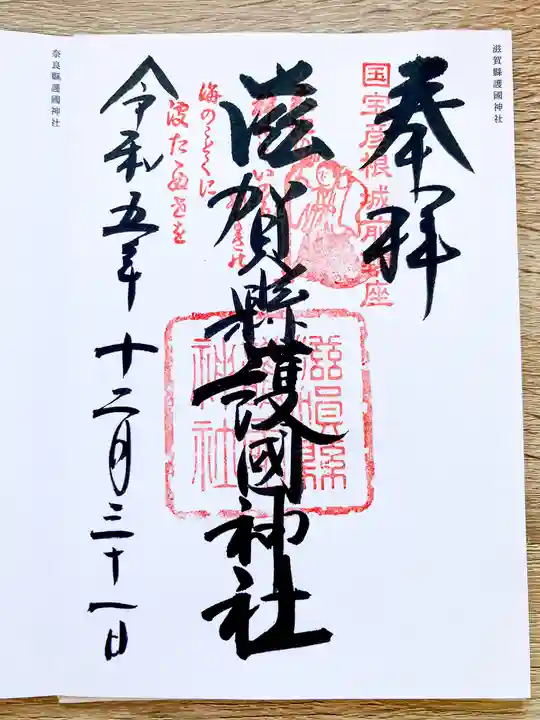 滋賀縣護國神社
奉拝
国宝彦根城前鎮座
滋賀縣護國神社
滋賀縣
護國
神社
海のことくに
令和五年十二月三十一日
奈良縣護國神社